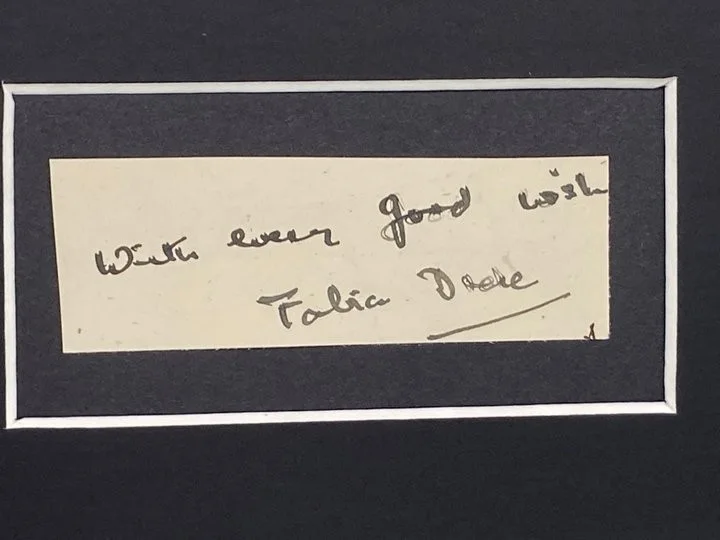 With every good wish
Fabia Drake